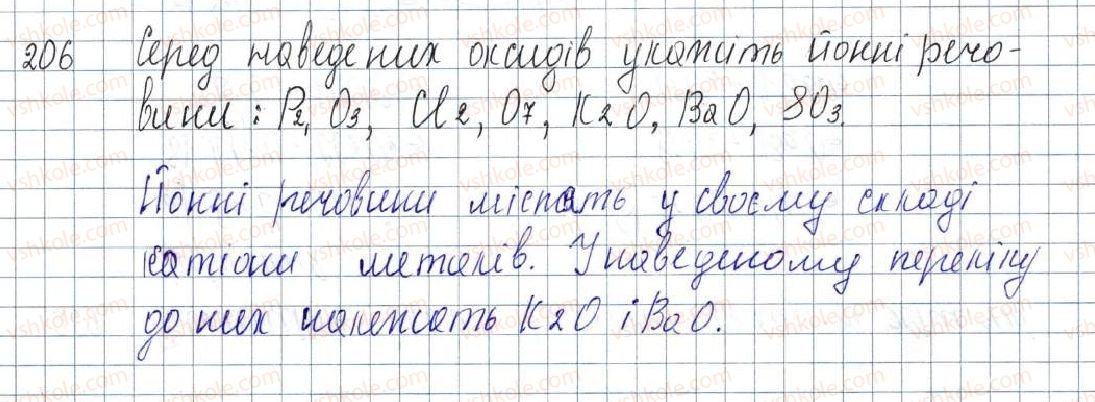 206 Серед наведених оксидів укажіть йонні речо-
вини: P2, O3, Cl2, O7, K2O, BaO, SO3.
Йонні речовини містять у своєму складі
катіони металів. У наведеному переліку
до них належать K2O і BaO.